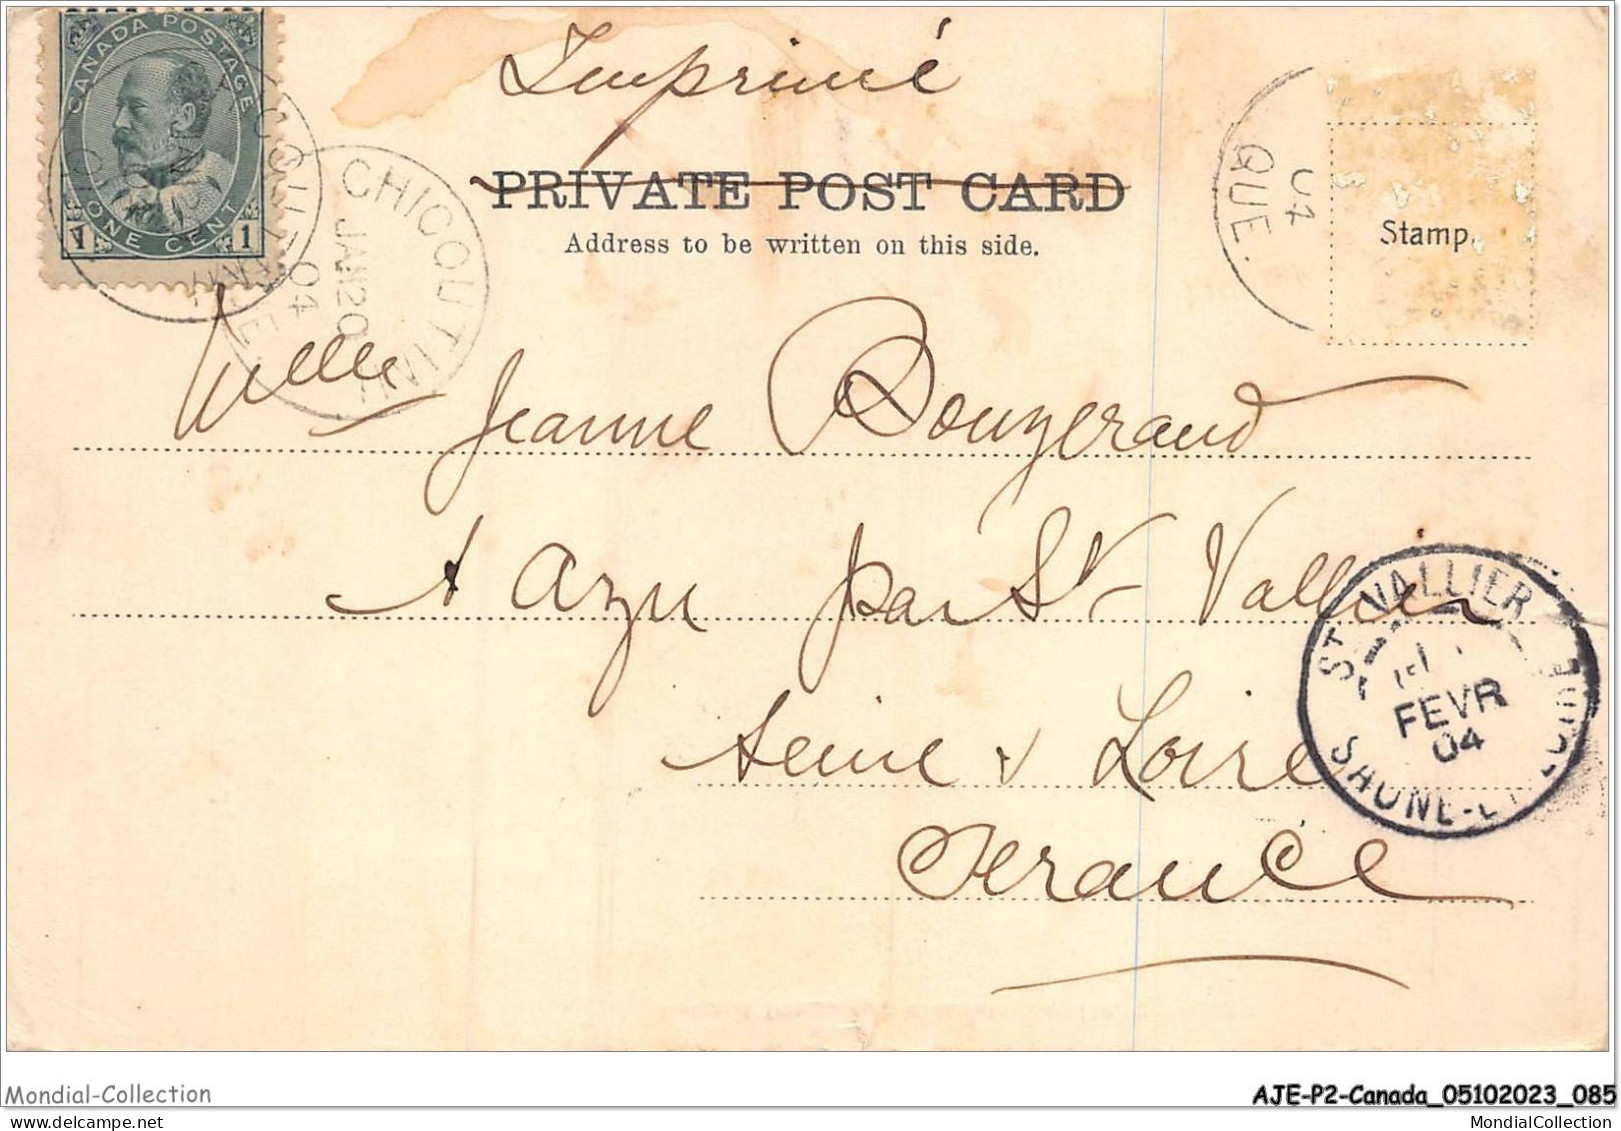 CANADA POSTAGE
1 ONE CENT 1
CHICOUTIMI
JAN 20
04
QUE.
04
QUE.
Imprimé
PRIVATE POST CARD
Address to be written on this side.
Stamp.
Melle Jeanne Bouzeraud
A Azu par St Vallier
Seine & Loire
France
ST VALLIER
FEVR
04
SAONE-ET-LOIRE
Mondial-Collection
AJE-P2-Canada_05102023_085
MondialCollection